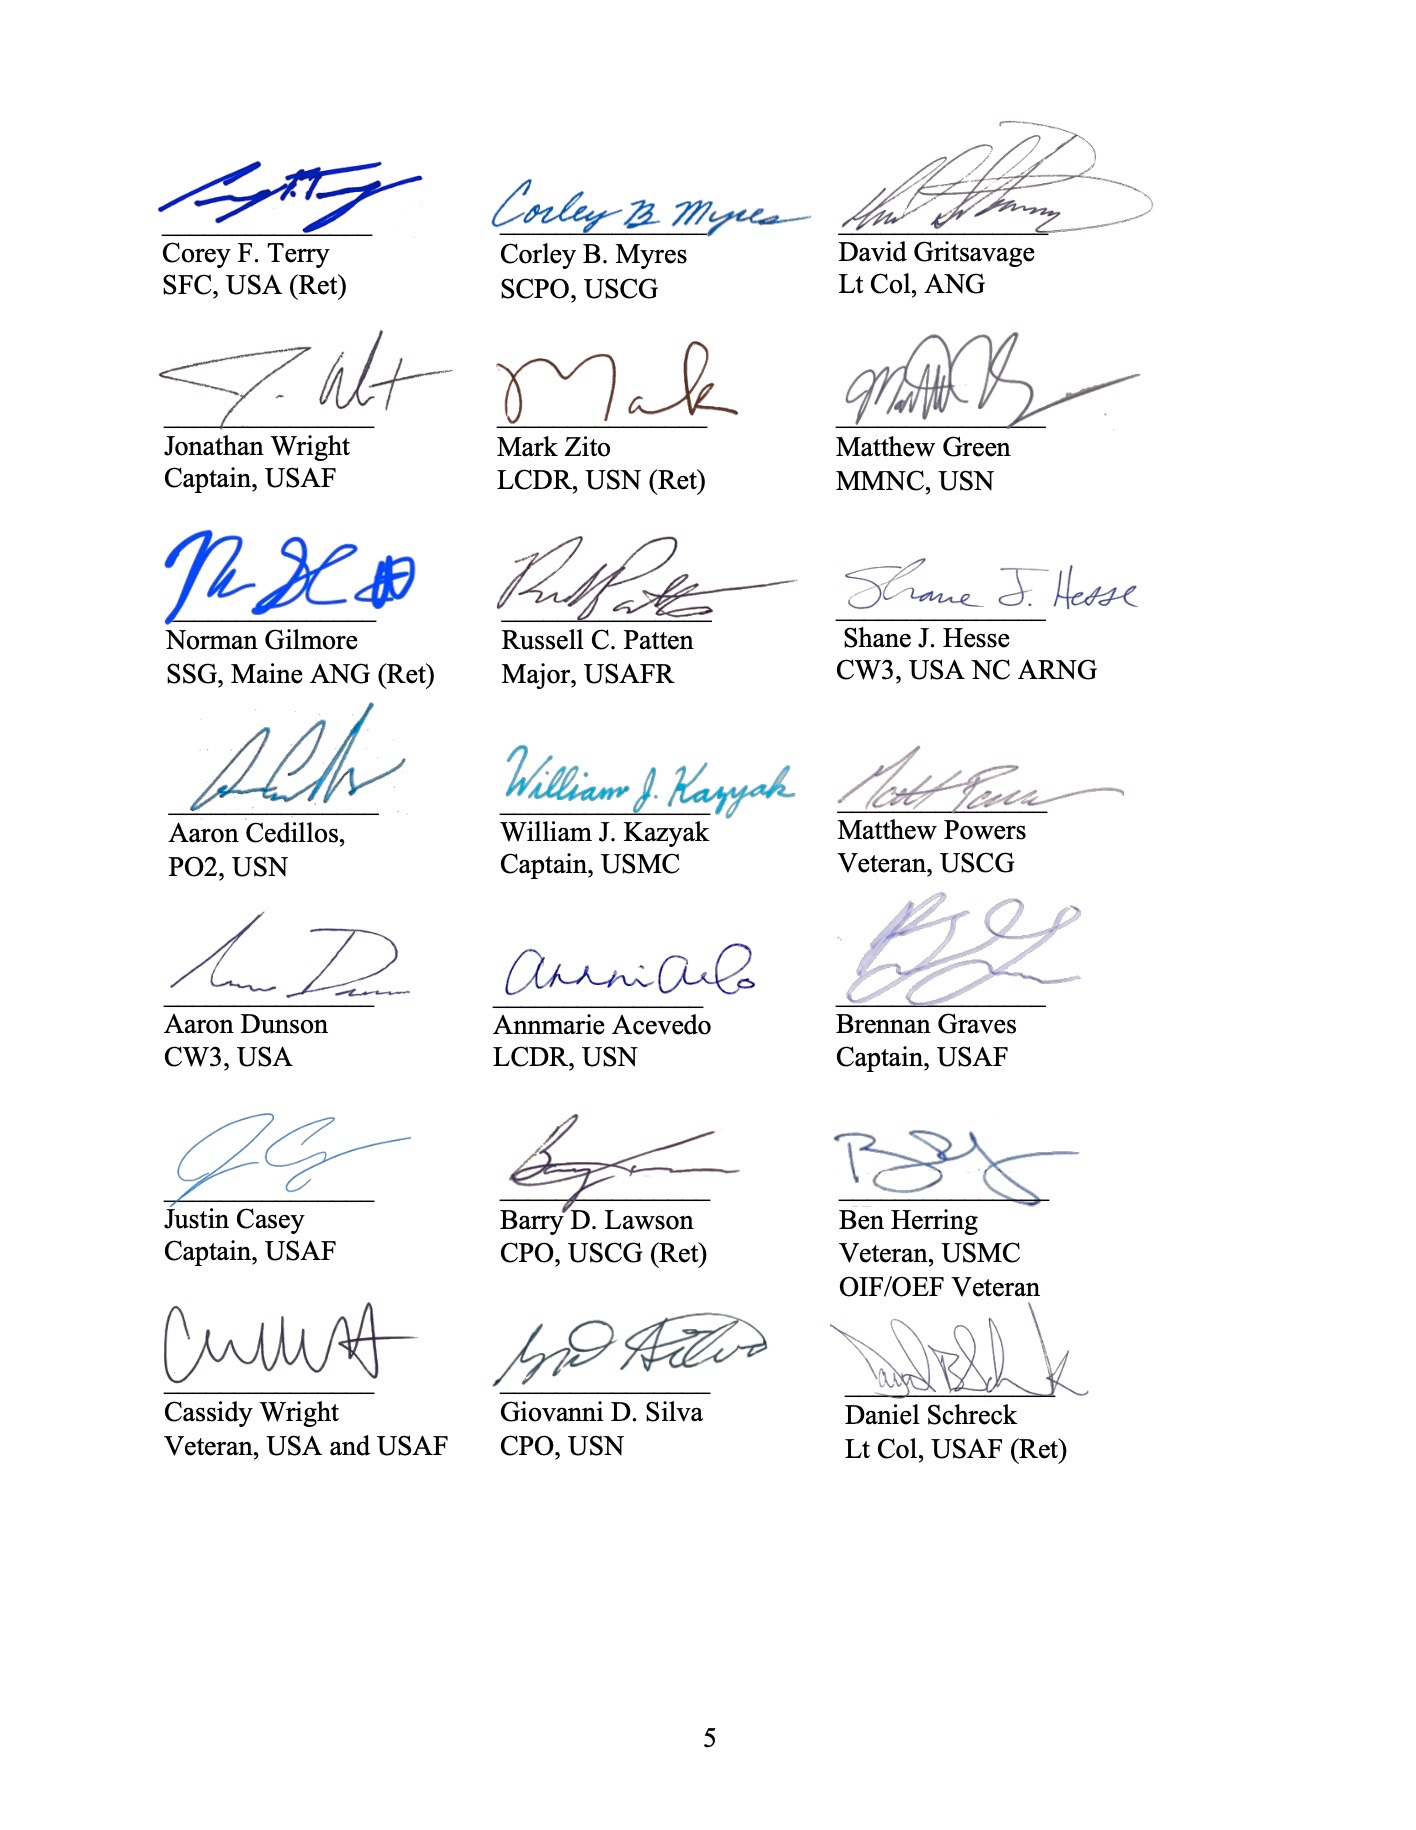 Corley B Myres
Corey F. Terry
SFC, USA (Ret)
Corley B. Myres
SCPO, USCG
David Gritsavage
Lt Col, ANG
Mark
Jonathan Wright
Captain, USAF
Mark Zito
LCDR, USN (Ret)
Matthew Green
MMNC, USN
Shane J. Hesse
Norman Gilmore
SSG, Maine ANG (Ret)
Russell C. Patten
Major, USAFR
Shane J. Hesse
CW3, USA NC ARNG
William J. Kazyak
Aaron Cedillos,
PO2, USN
William J. Kazyak
Captain, USMC
Matthew Powers
Veteran, USCG
Aaron Dunson
CW3, USA
Annmarie Acevedo
LCDR, USN
Brennan Graves
Captain, USAF
Justin Casey
Captain, USAF
Barry D. Lawson
CPO, USCG (Ret)
Ben Herring
Veteran, USMC
OIF/OEF Veteran
Cassidy Wright
Veteran, USA and USAF
Giovanni D. Silva
CPO, USN
Daniel Schreck
Lt Col, USAF (Ret)
5